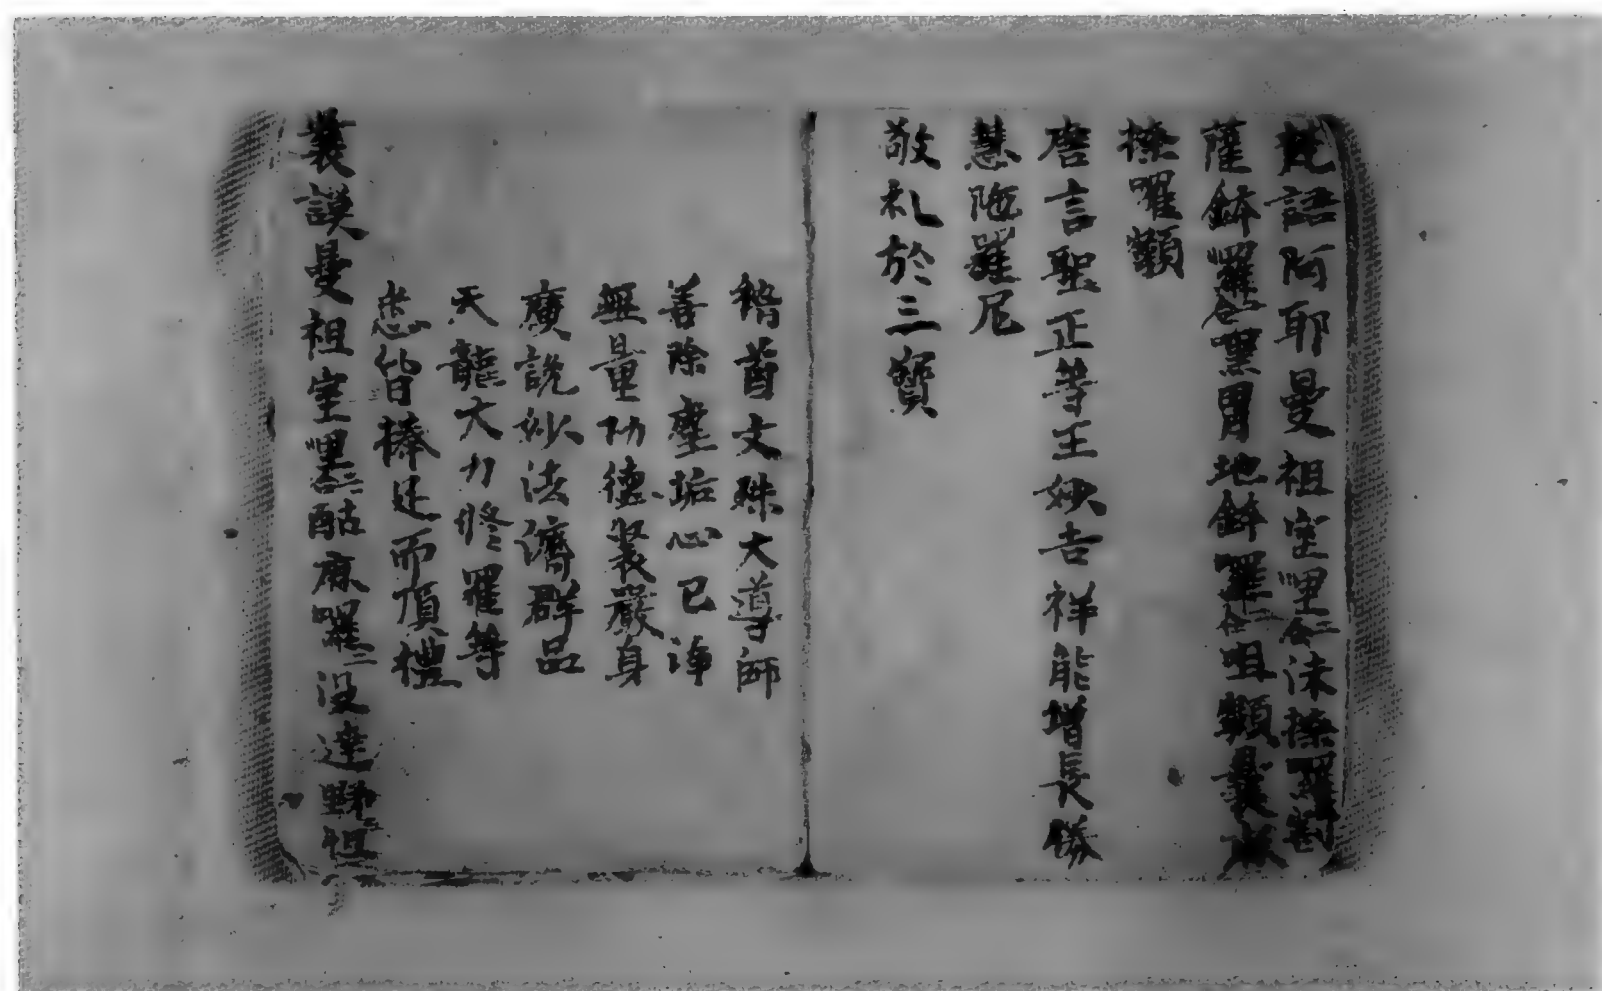 梵語阿耶曼祖室哩二合沫捺囉割
薩鉢囉二合嘿胃地鉢囉二合咀顙曩麻
捺囉顙
唐言聖正等王妙吉祥能增長勝
慧陁羅尼
敬礼於三寶
稽首文殊大導師
善除塵垢心已淨
無量功德裝嚴身
廣說妙法濟群品
天龍大力修羅等
悉皆捧足而頂禮
曩謨曼祖室哩二合酤麻囉二没達野怛